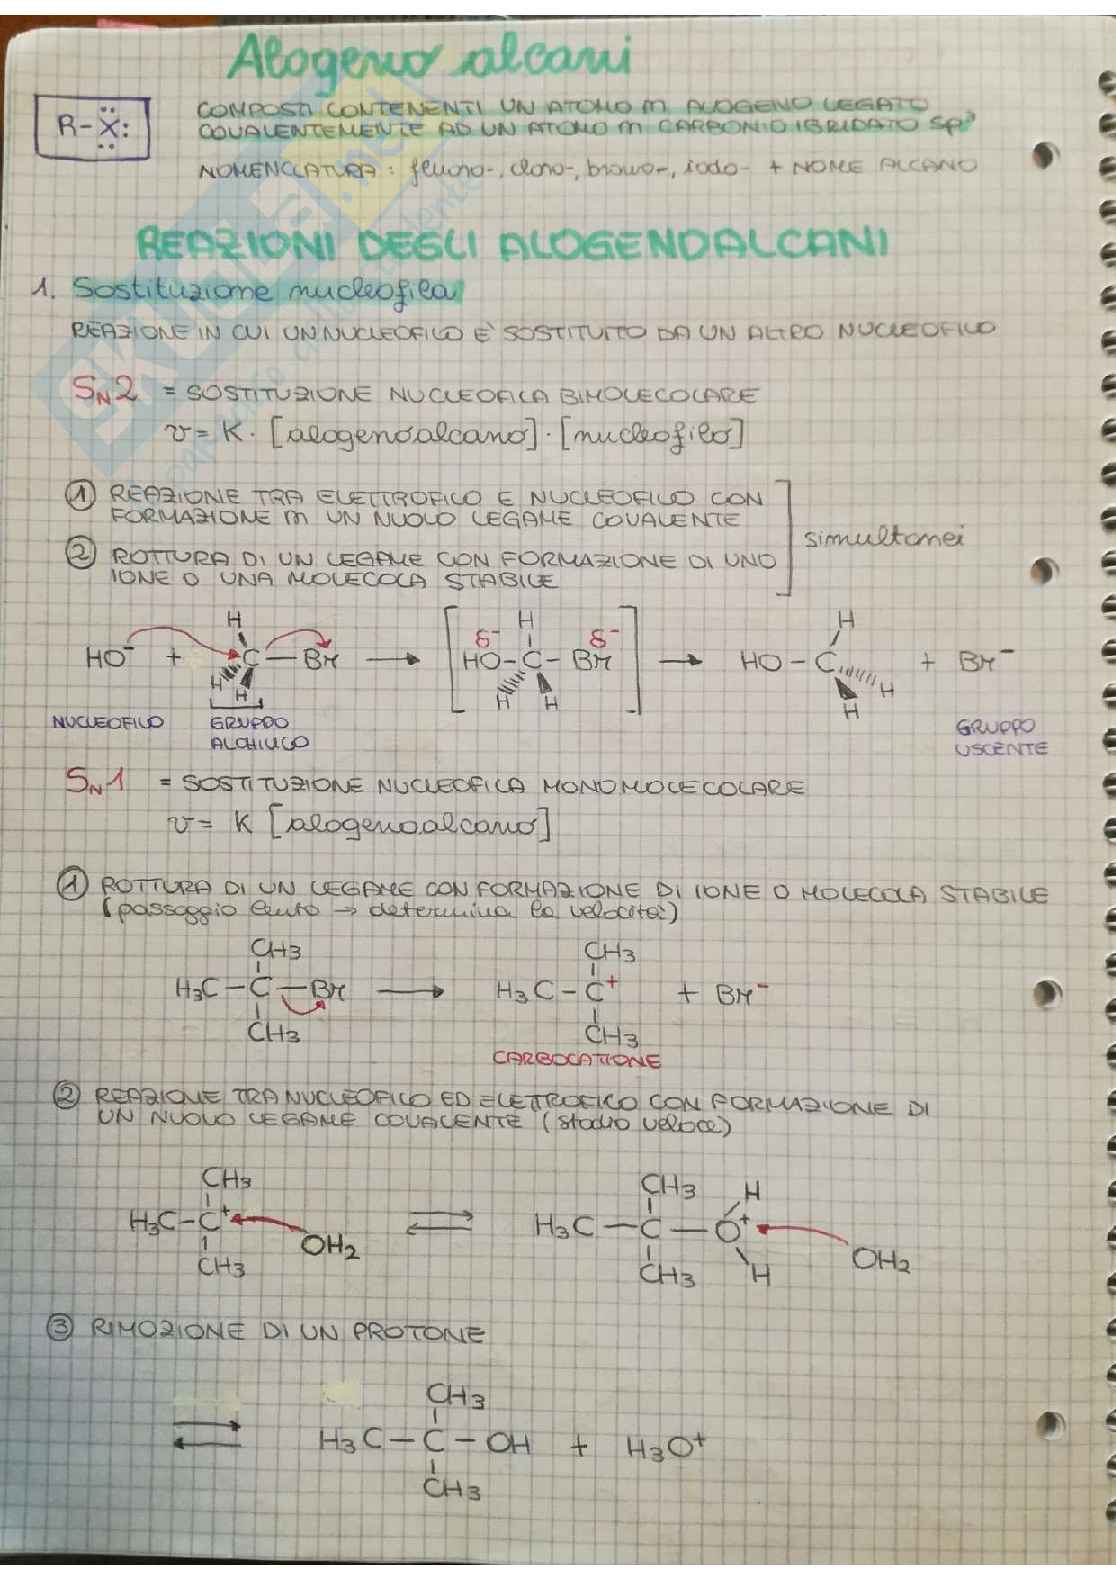 Alogeno alcani
R-X:
COMPOSTI CONTENENTI UN ATOMO DI ALOGENO LEGATO
COVALENTEMENTE AD UN ATOMO DI CARBONIO IBRIDATO sp³
NOMENCLATURA: fluoro-, cloro-, bromo-, iodo- + NOME ALCANO
REAZIONI DEGLI ALOGENOALCANI
1. Sostituzione nucleofila
REAZIONE IN CUI UN NUCLEOFILO E' SOSTITUITO DA UN ALTRO NUCLEOFILO
SN2 = SOSTITUZIONE NUCLEOFILA BIMOLECOLARE
v = K · [alogenoalcano] · [nucleofilo]
① REAZIONE TRA ELETTROFILO E NUCLEOFILO CON
FORMAZIONE DI UN NUOVO LEGAME COVALENTE
② ROTTURA DI UN LEGAME CON FORMAZIONE DI UNO
IONE O UNA MOLECOLA STABILE
simultanei
H H H
δ⁻ δ⁻
HO⁻ + C — Br → [HO-C-Br] → HO - C + Br⁻
H H H H H H
NUCLEOFILO GRUPPO ALCHILICO GRUPPO USCENTE
SN1 = SOSTITUZIONE NUCLEOFILA MONOMOLECOLARE
v = K [alogenoalcano]
① ROTTURA DI UN LEGAME CON FORMAZIONE DI IONE O MOLECOLA STABILE
(passaggio lento → determina la velocità)
CH3 CH3
H3C - C - Br → H3C - C+ + Br⁻
CH3 CH3
CARBOCATIONE
② REAZIONE TRA NUCLEOFILO ED ELETTROFILO CON FORMAZIONE DI
UN NUOVO LEGAME COVALENTE (stadio veloce)
CH3 CH3 H
H3C-C+ OH2 ⇌ H3C — C — O+ OH2
CH3 CH3 H
③ RIMOZIONE DI UN PROTONE
CH3
⇌ H3C - C - OH + H3O+
CH3